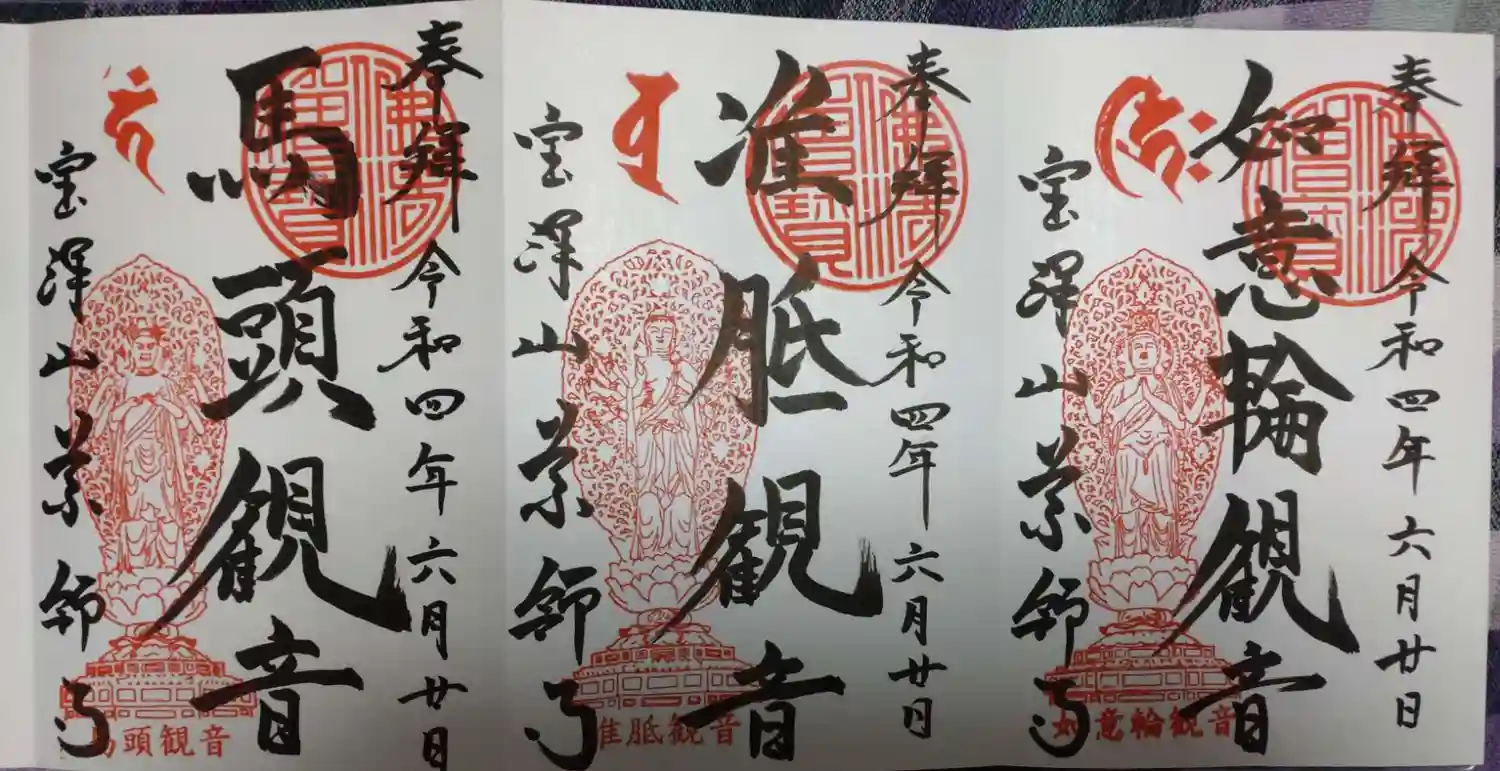 奉拜 令和四年六月廿日
如意輪観音
宝澤山薬師寺
如意輪観音
奉拜 令和四年六月廿日
准胝観音
宝澤山薬師寺
准胝観音
奉拜 令和四年六月廿日
馬頭観音
宝澤山薬師寺
馬頭観音